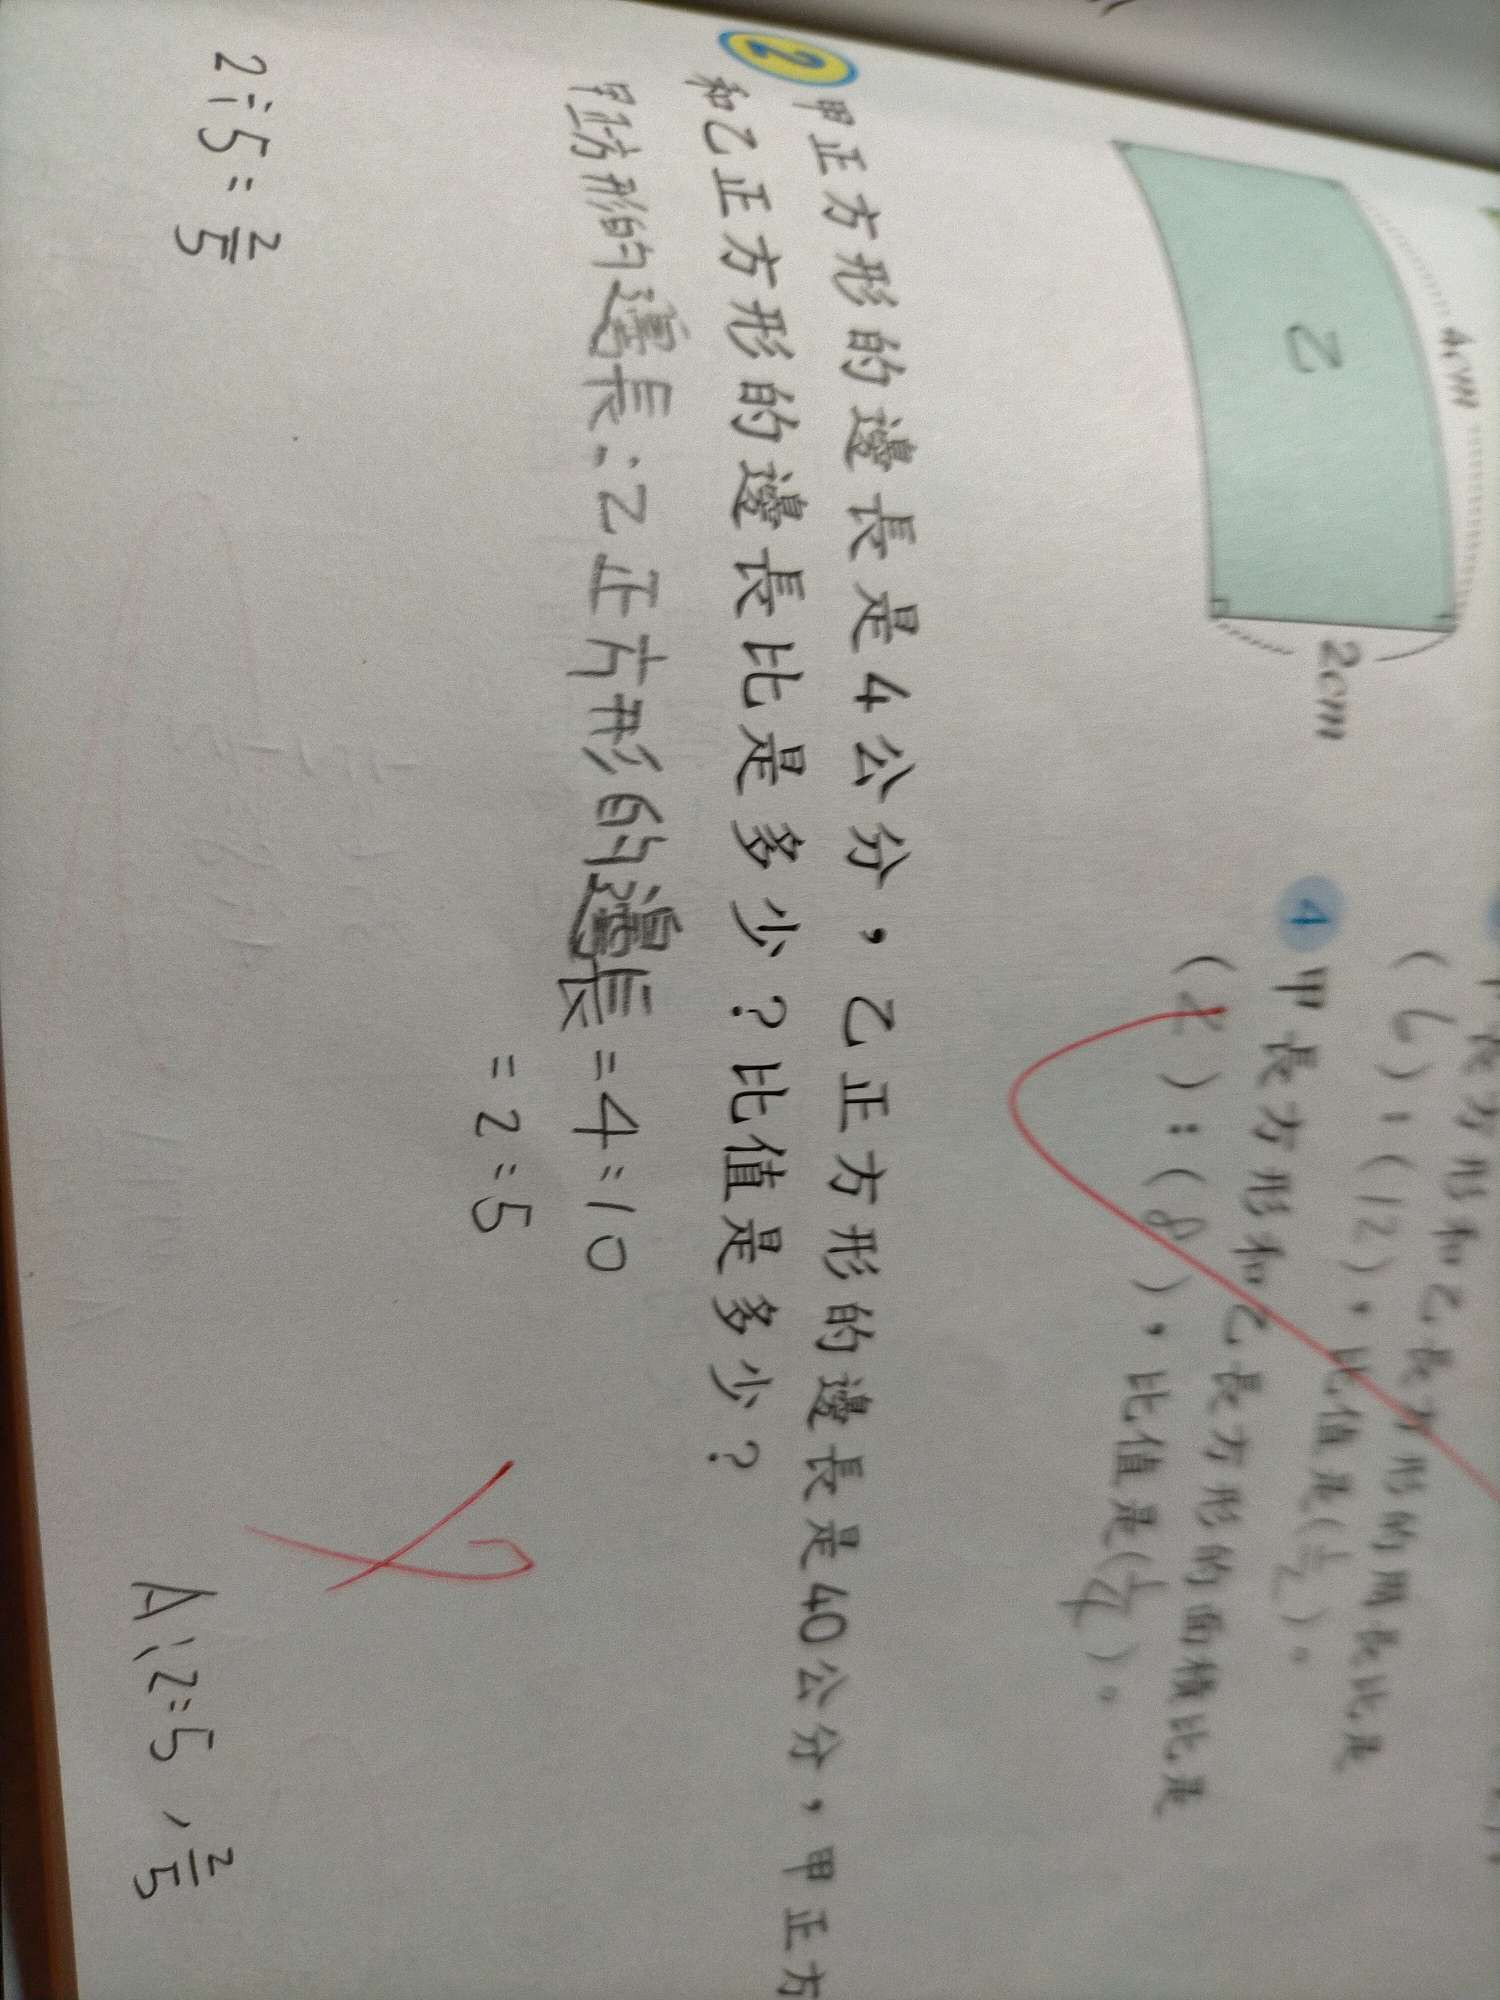 4cm
乙
2cm
長方形和乙長方形的周長比是
(6):(12),比值是(1/2)。
4 甲長方形和乙長方形的面積比是
(2):(8),比值是(1/4)。
2 甲正方形的邊長是4公分,乙正方形的邊長是40公分,甲正方
和乙正方形的邊長比是多少?比值是多少?
甲正方形的邊長:乙正方形的邊長=4:10
=2:5
2÷5=2/5
A:2:5、2/5